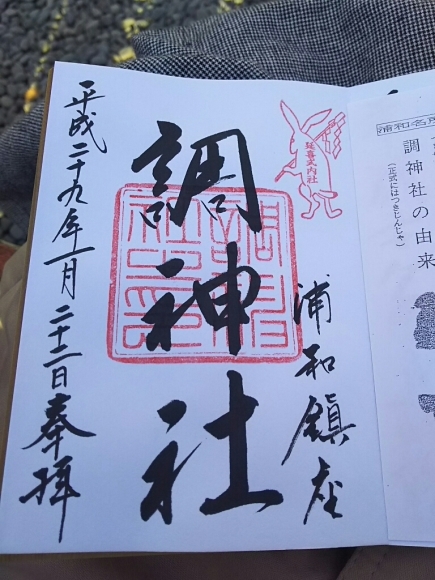 浦和名所
調神社の由来
(正式にはつきじんじゃ)
延喜式内社
浦和鎮座
調神社
平成二十九年一月二十二日奉拝